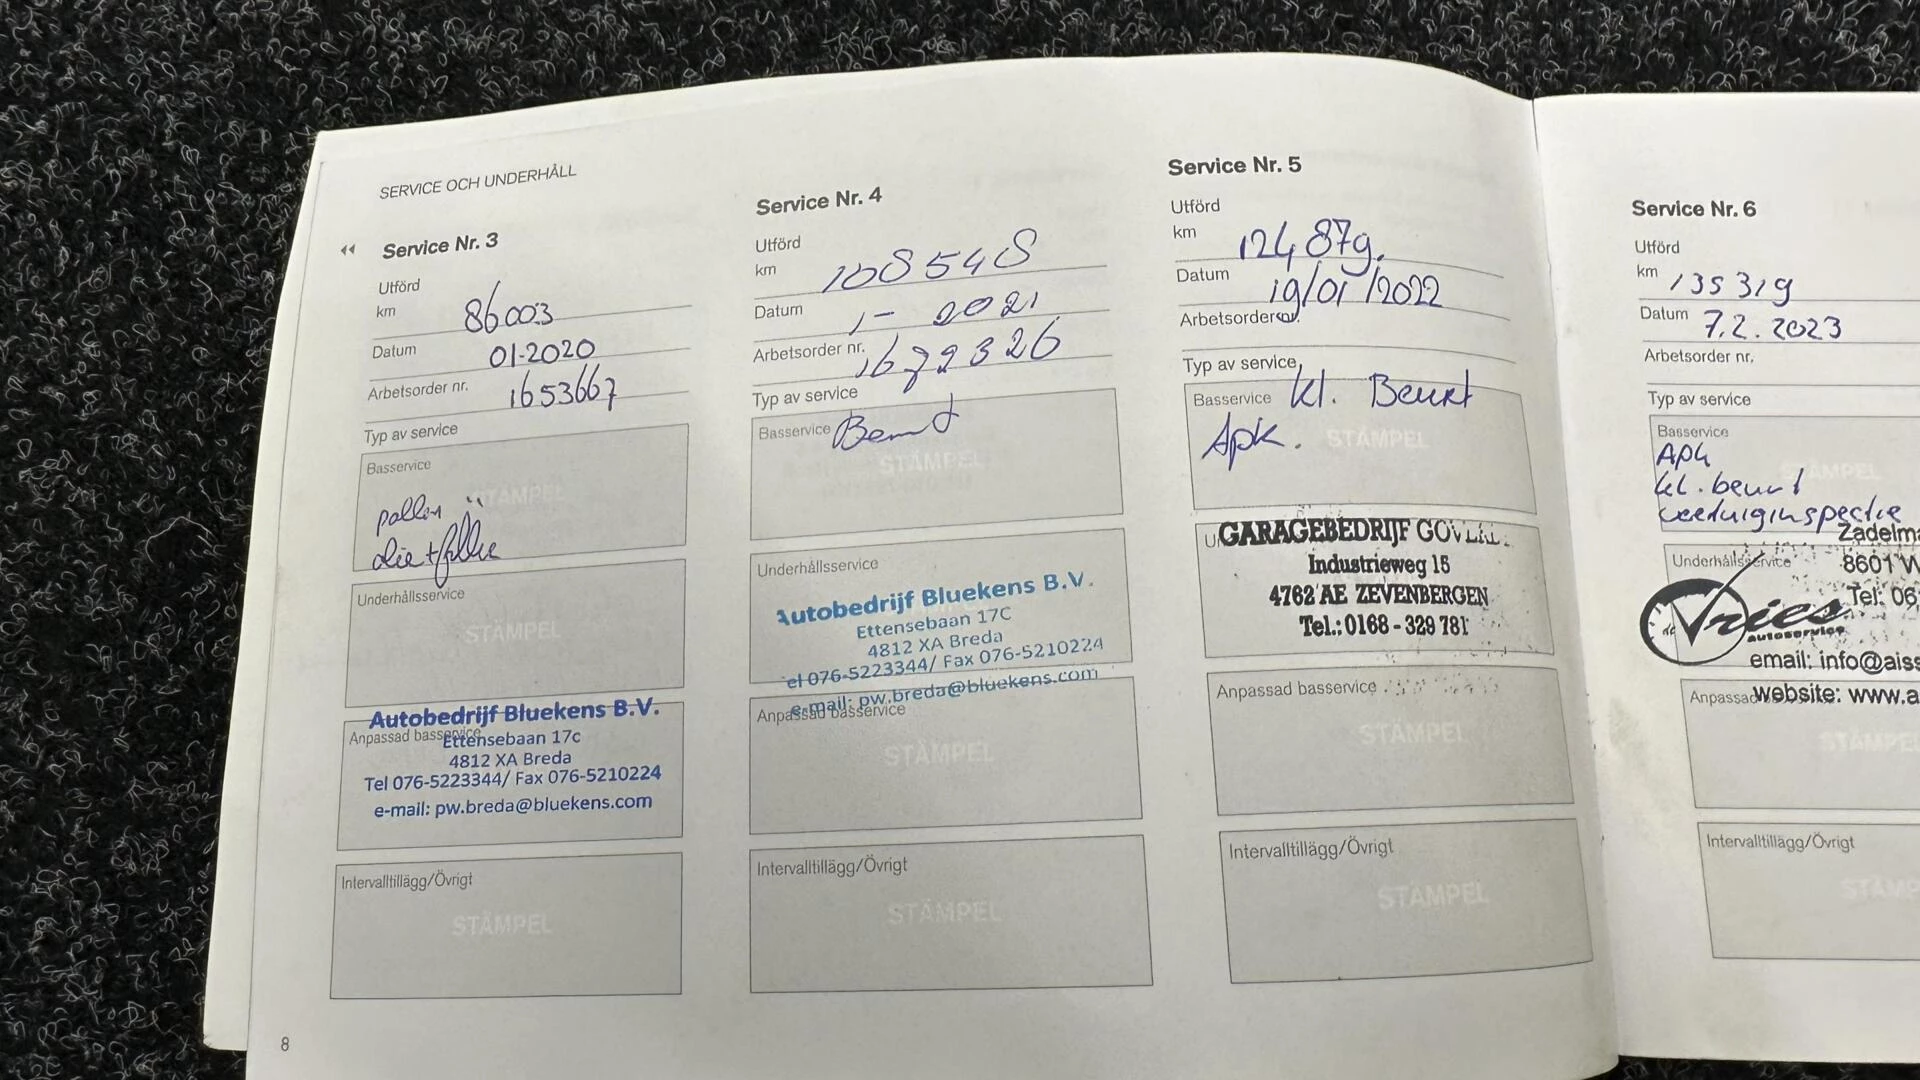 SERVICE OCH UNDERHÅLL
Service Nr. 3
Utförd
km 86003
Datum 01-2020
Arbetsorder nr. 1653667
Typ av service
Basservice
STÄMPEL
pollen
olie + filter
Underhållsservice
STÄMPEL
Autobedrijf Bluekens B.V.
Anpassad basservice
Ettensebaan 17c
4812 XA Breda
Tel 076-5223344/ Fax 076-5210224
e-mail: pw.breda@bluekens.com
Intervalltillägg/Övrigt
STÄMPEL
8
Service Nr. 4
Utförd
km 108548
Datum 1- 2021
Arbetsorder nr. 1679326
Typ av service
Basservice Beurt
STÄMPEL
Underhållsservice
Autobedrijf Bluekens B.V.
Ettensebaan 17C
4812 XA Breda
el 076-5223344/ Fax 076-5210224
e-mail: pw.breda@bluekens.com
Anpassad basservice
STÄMPEL
Intervalltillägg/Övrigt
STÄMPEL
Service Nr. 5
Utförd
km 124879.
Datum 19/01/2022
Arbetsorder
Typ av service
Basservice kl. Beurt
Apk.
STÄMPEL
GARAGEBEDRIJF
Industrieweg 15
4762 AE ZEVENBERGEN
Tel.: 0168 - 329 781
Anpassad basservice
STÄMPEL
Intervalltillägg/Övrigt
STÄMPEL
Service Nr. 6
Utförd
km 135319
Datum 7.2.2023
Arbetsorder nr.
Typ av service
Basservice
APK
kl. beurt
voertuiginspectie
Zadelma
Underhållsservice
8601 W
Tel: 06
de Vries
autoservice
email: info@aiss
Anpassad
website: www.a
STÄMPEL
Intervalltillägg/Övrigt
STÄMP